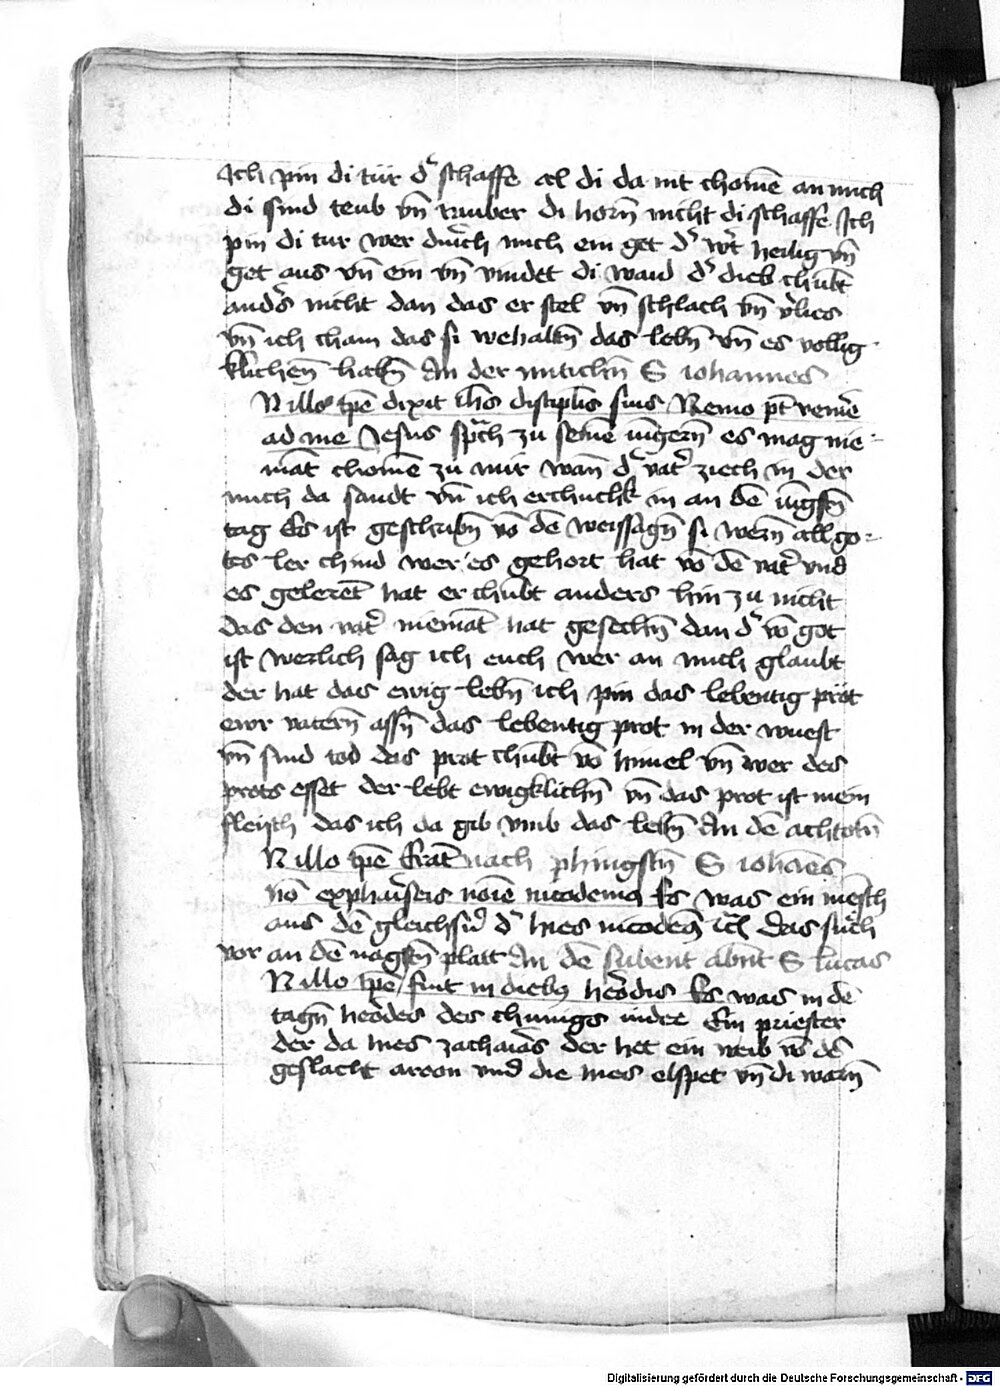 Ich pin di tür dˀ schaffe al di da nit chomē an mich
di sind deub vn̄ rauber di horn̄ nicht di schaffe Ich
pin di tur wer durich mich ein get dˀ wˀt heilig vn̄
get aus vn̄ ein vn̄ vindet di waid dˀ dieb chūbt
andˀs nicht dan das er stel vn̄ schlach vn̄ vˀlies
vn̄ ich cham das si wehaltn̄ das lebn̄ vn̄ es vollig
klichen̄ habn̄ An der mitichn̄ S iohannes
N illo tpē dixit ihs discipulis suis Nemo pt venire
ad me Jesus sprach zu seinē iūgern̄ es mag nie-
māt chomē zu mir wan̄ dˀ vatˀ ziech in der
mich da sandt vn̄ ich erchuchk in an dē iūgstn̄
tag Es ist geschribn̄ vō dē weissagn̄ si wern̄ all go-
tes ler chind wer es gehort hat vō dē vatˀ vnd
es gelerēt hat er chūbt anders hin zu nicht
das den vatˀ niemāt hat gesechn̄ dan dˀ vō got
ist werlich sag ich euch wer an mich glaubt
der hat das ewig lebn̄ ich pin das lebentig prot
ewr vatern̄ assn̄ das lebentig prot in der wuest
vn̄ sind tod das prot chūbt vō himel vn̄ wer des
prots esset der lebt ewigklichn̄ vn̄ das prot ist mein
fleisch das ich da gib vmb das lebn̄ An dē achtotn̄
N illo tpē Erat nach phingstn̄ S iohānes
hō ex pharˀseis noīe nicodemus Es was ein mēsch
aus dē gleichsnˀ dˀ hies nicodemˀ das such
vor an dē nagstn̄ plat An dē subent abnt S lucas
N illo tpē fuit in diebus herodis Es was in dē
tagn̄ herodes des chunigs iudee Ein priester
der da hies zacharias der het ein weib vō dē
geslacht aroon vnd die hies elspet vn̄ di warn̄
Digitalisierung gefördert durch die Deutsche Forschungsgemeinschaft - DFG